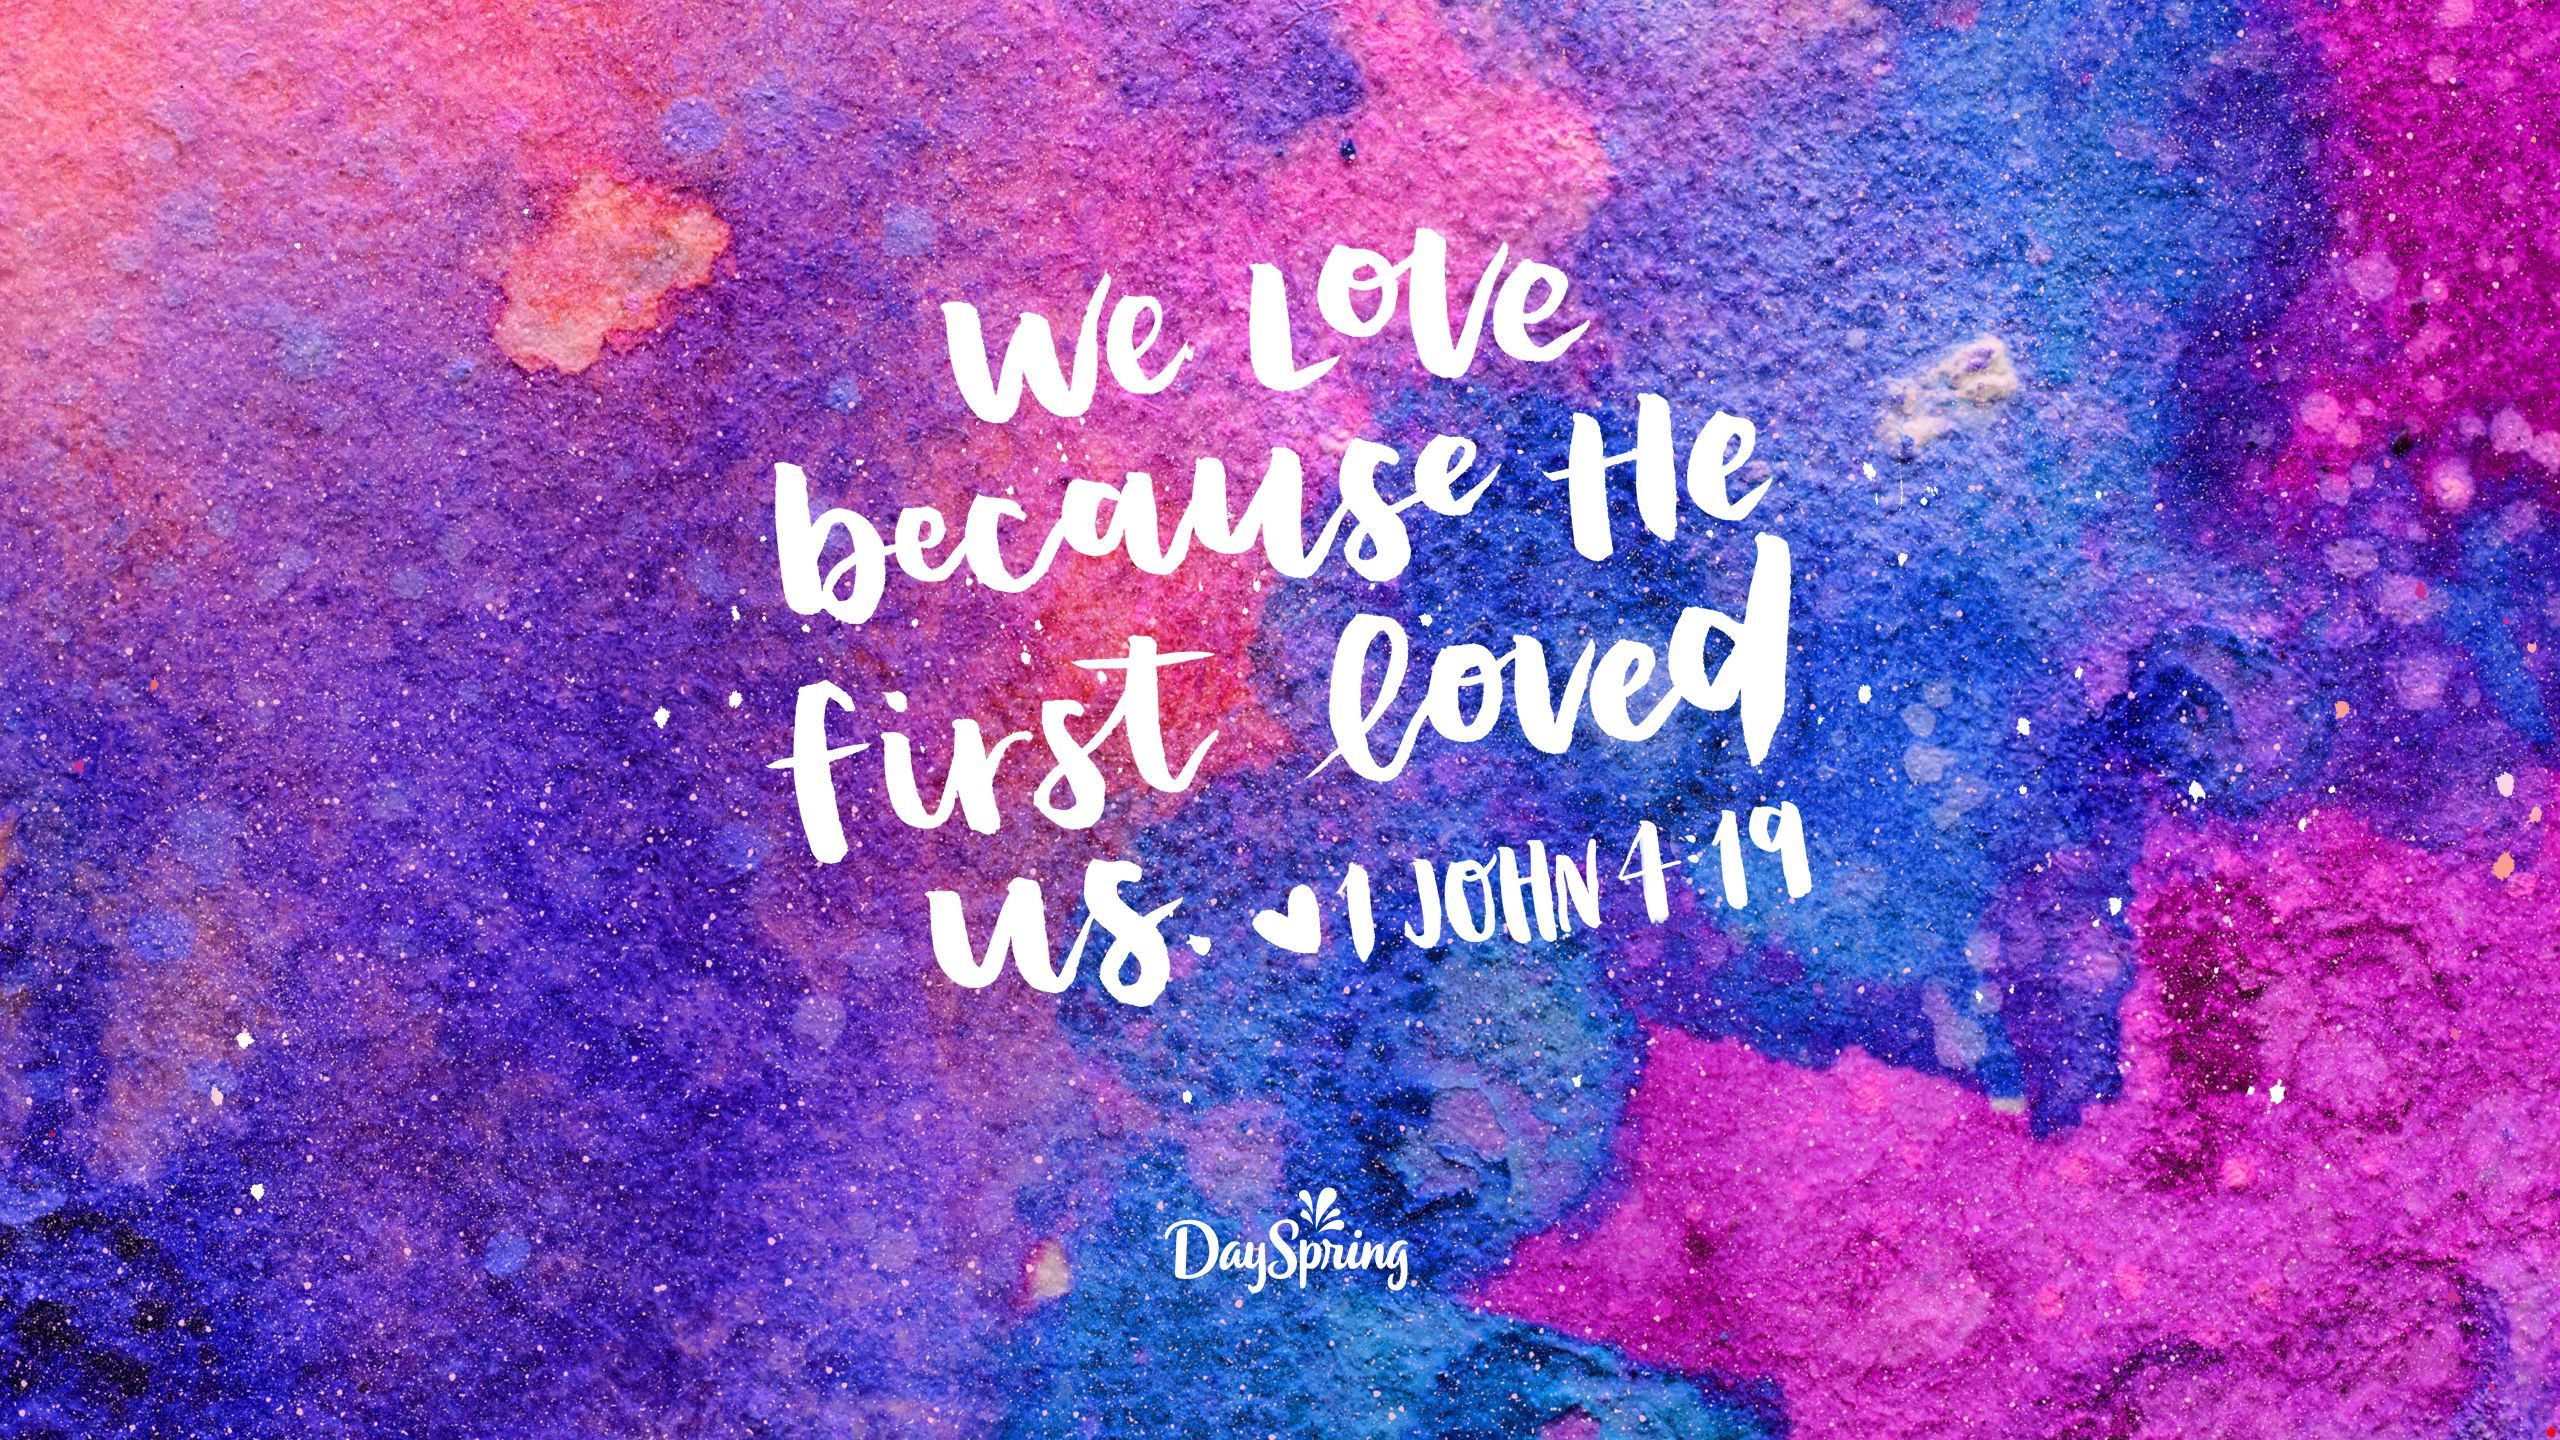 We Love
because He
first loved
us. ♥ 1 JOHN 4:19
DaySpring